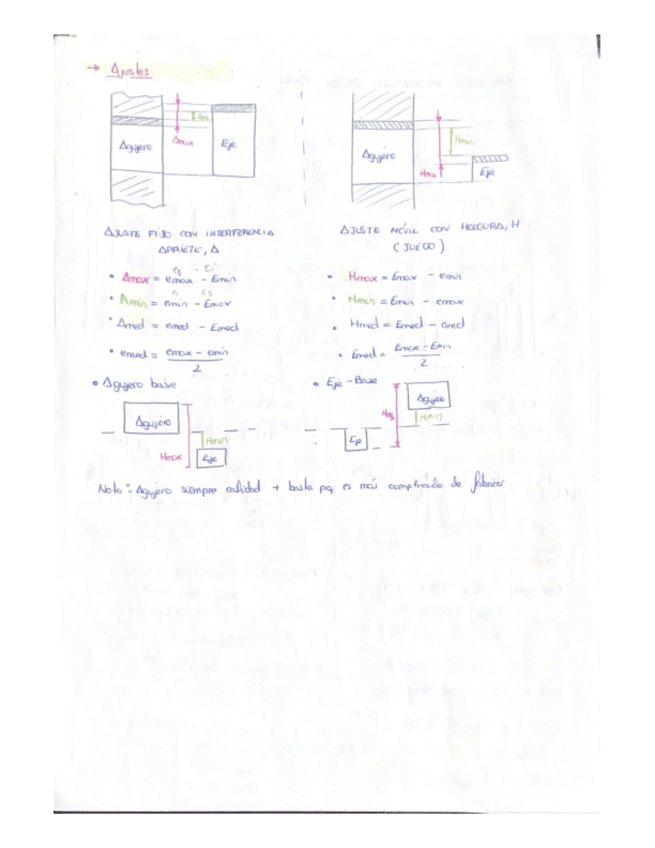 → Ajustes
Agujero
Amax
Amin
Eje
Agujero
Hmin
Hmax
Eje
AJUSTE FIJO CON INTERFERENCIA
APRIETE, A
AJUSTE MÓVIL CON HOLGURA, H
(JUEGO)
es - Ei
• Amax = emax - Emin
ei ES
• Amin = emin - Emax
• Amed = emed - Emed
• emed = emax - emin
2
• Hmax = Emax - emin
• Hmin = Emin - emax
• Hmed = Emed - emed
• Emed = Emax - Emin
2
• Agujero base
Agujero
Hmin
Hmax
Eje
• Eje - Base
Agujero
Hmin
Eje
Nota: Agujero siempre calidad + basta pq es más complicado de fabricar